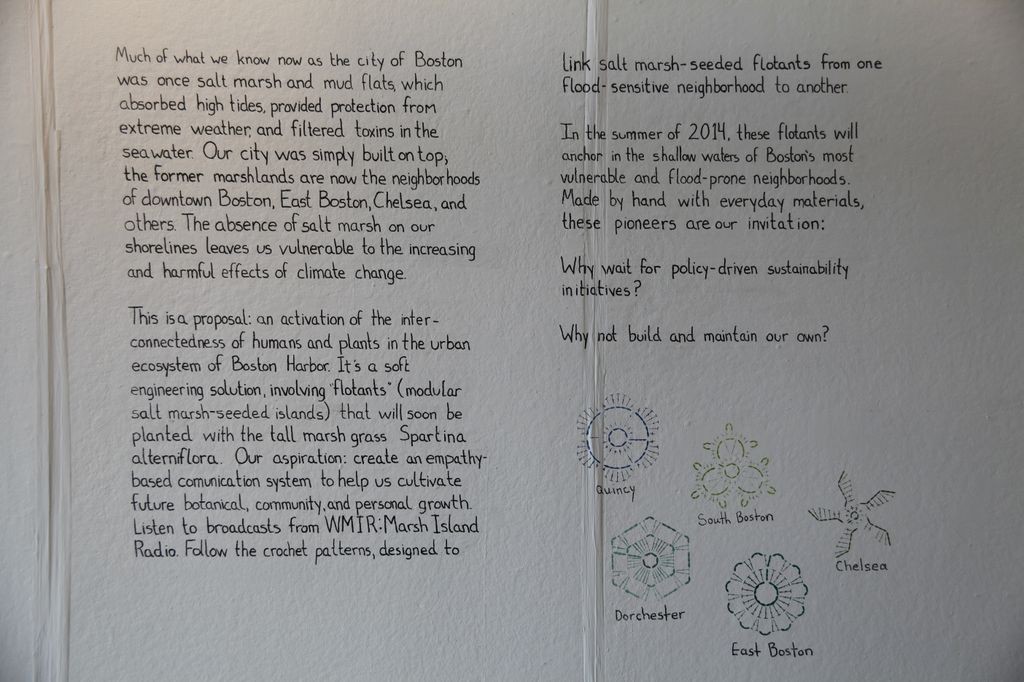 Much of what we know now as the city of Boston
was once salt marsh and mud flats, which
absorbed high tides, provided protection from
extreme weather, and filtered toxins in the
seawater. Our city was simply built on top;
the former marshlands are now the neighborhoods
of downtown Boston, East Boston, Chelsea, and
others. The absence of salt marsh on our
shorelines leaves us vulnerable to the increasing
and harmful effects of climate change.
This is a proposal: an activation of the inter-
connectedness of humans and plants in the urban
ecosystem of Boston Harbor. It's a soft
engineering solution, involving "flotants" (modular
salt marsh-seeded islands) that will soon be
planted with the tall marsh grass Spartina
alterniflora. Our aspiration: create an empathy-
based comunication system to help us cultivate
future botanical, community, and personal growth.
Listen to broadcasts from WMIR: Marsh Island
Radio. Follow the crochet patterns, designed to
link salt marsh-seeded flotants from one
flood-sensitive neighborhood to another.
In the summer of 2014, these flotants will
anchor in the shallow waters of Boston's most
vulnerable and flood-prone neighborhoods.
Made by hand with everyday materials,
these pioneers are our invitation:
Why wait for policy-driven sustainability
initiatives?
Why not build and maintain our own?
Quincy
South Boston
Chelsea
Dorchester
East Boston